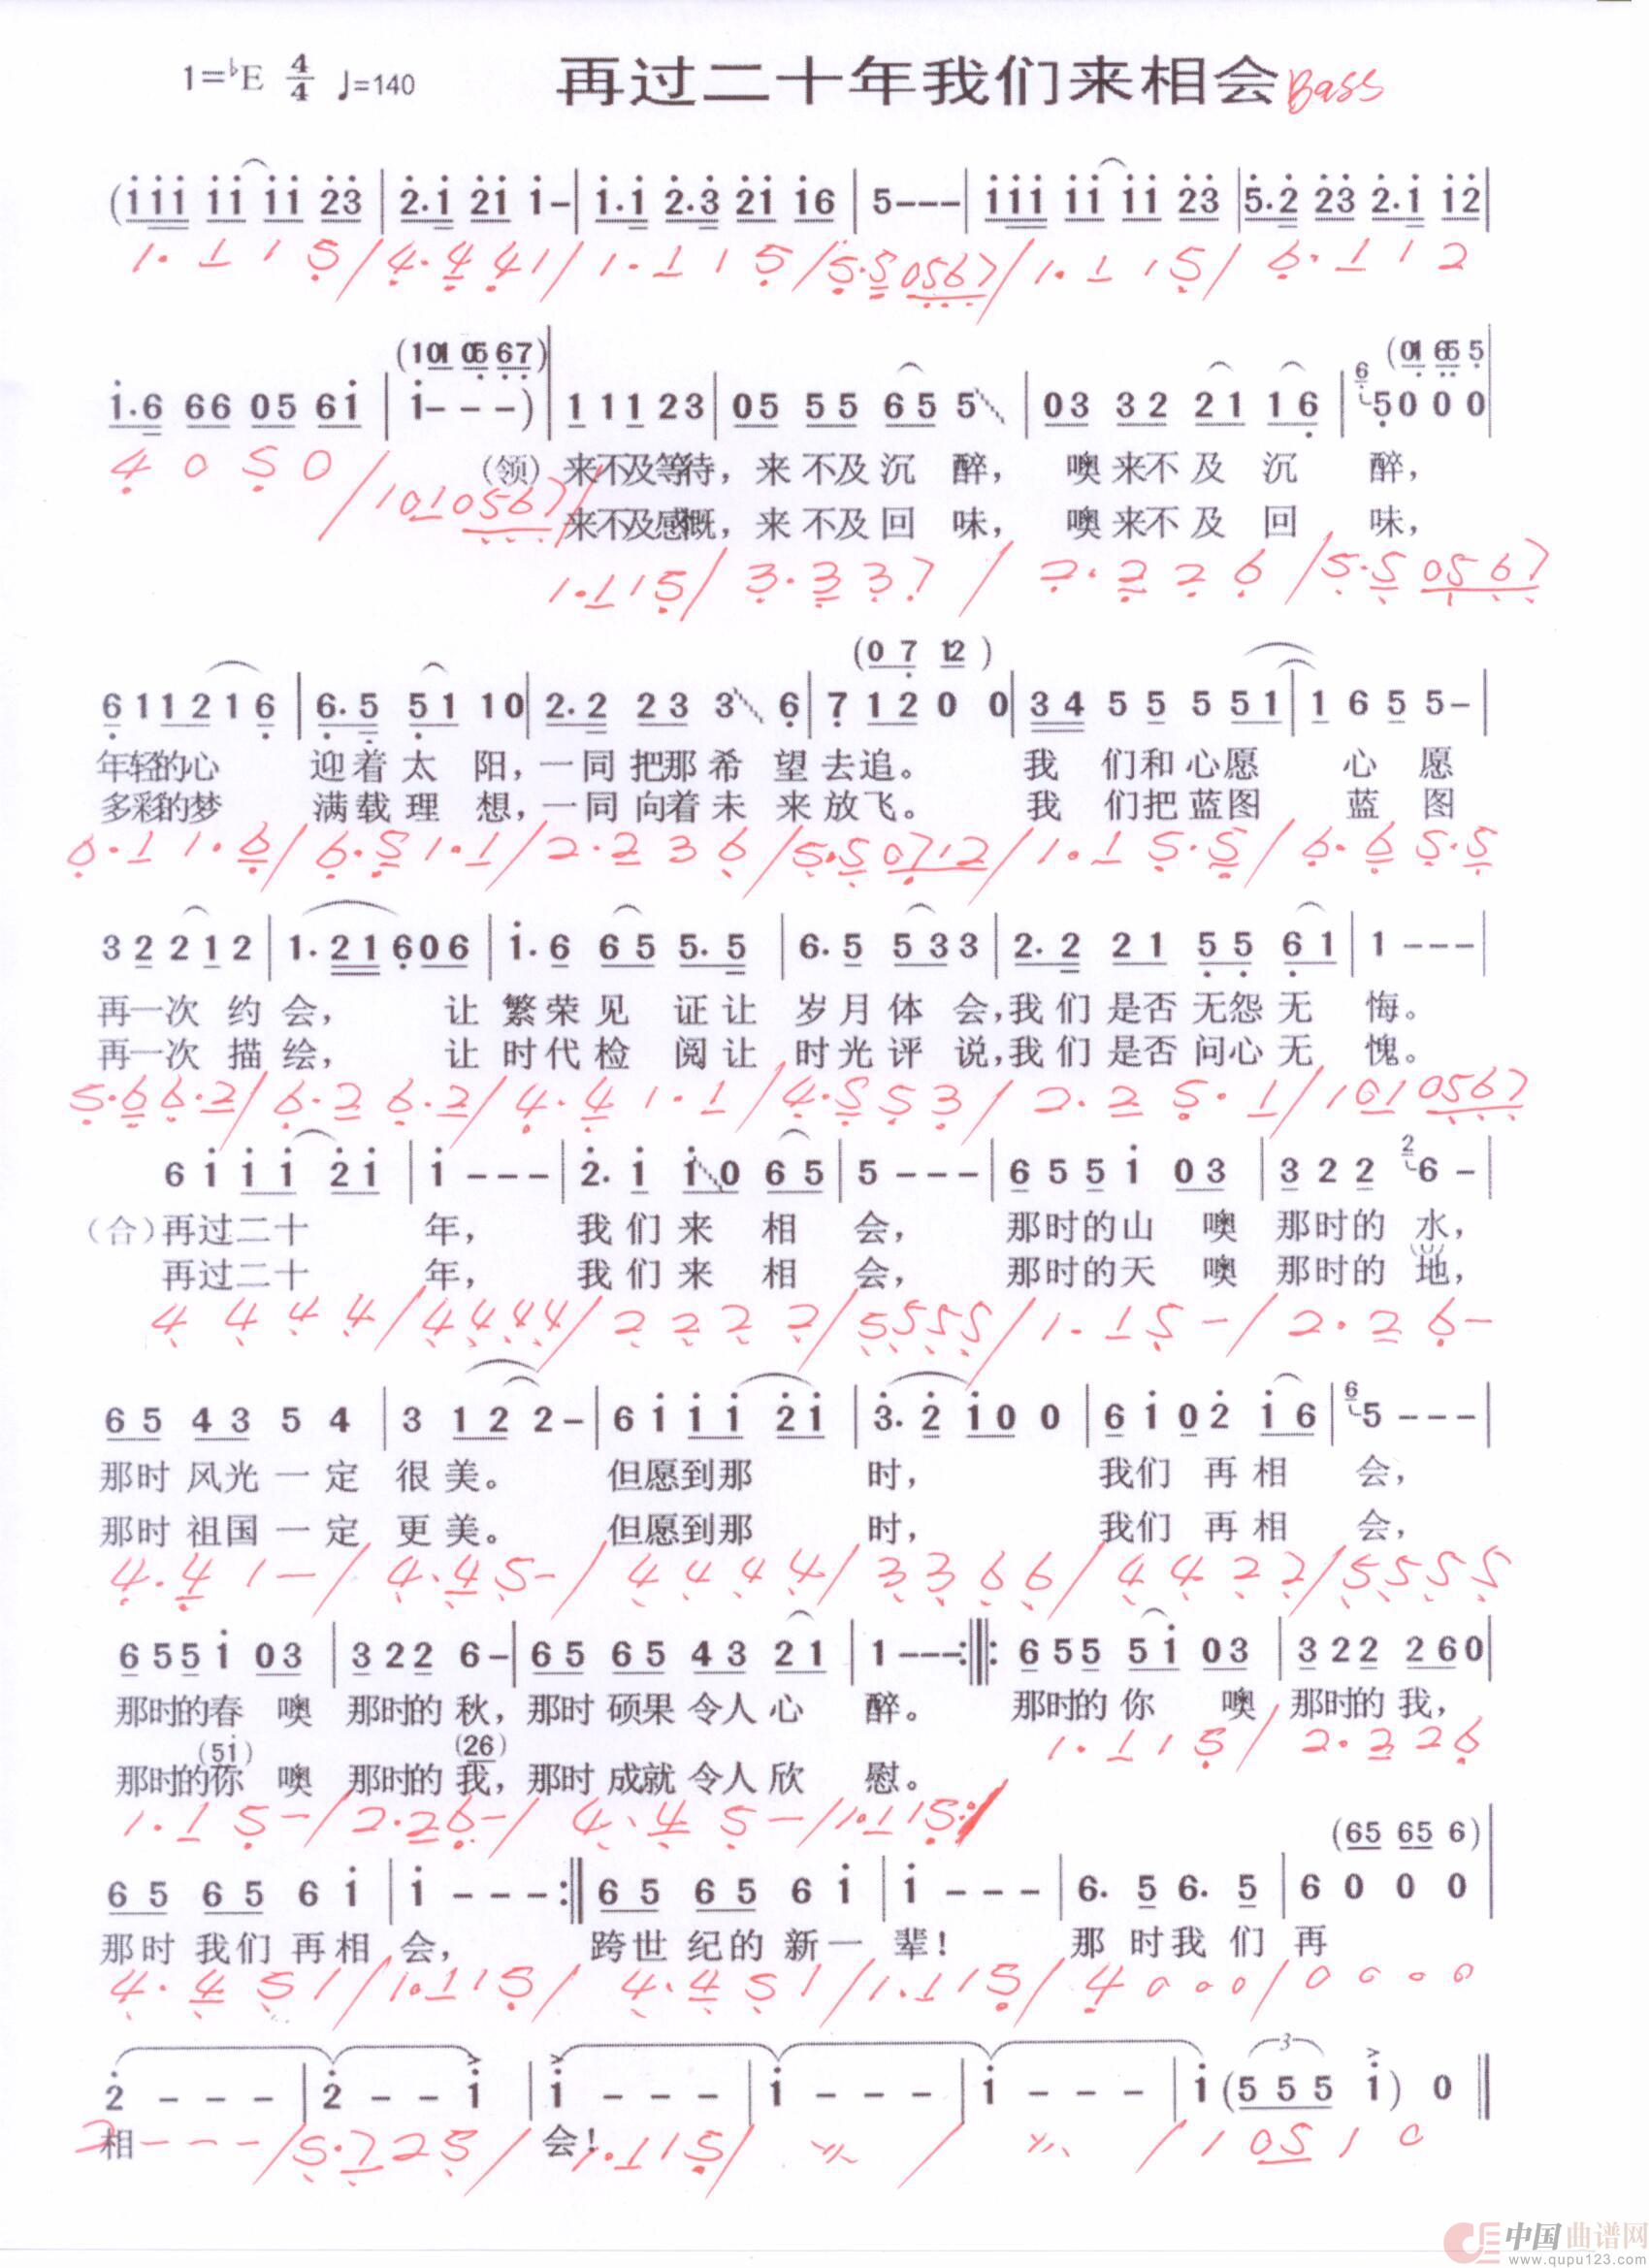 1=♭E 4/4 ♩=140 再过二十年我们来相会 Bass
(i i i i i i i 2 3 | 2· i 2 i i – | i· i 2· 3 2 i i 6 | 5 – – – | i i i i i i i 2 3 | 5· 2 2 3 2· i i 2 |
1· 1 1 5 / 4· 4 4 1 / 1· 1 1 5 / 5· 5 0 5 6 7 / 1· 1 1 5 / 6· 1 1 2
(1 0 1 0 5 6 7) (0 1 6 5 5)
i· 6 6 6 0 5 6 i | i – – –) | 1 1 1 2 3 | 0 5 5 5 6 5 5 | 0 3 3 2 2 1 1 6 | 6 5 0 0 0 |
(领) 来不及等待, 来不及沉醉, 噢来不及沉醉,
4 0 5 0 / 1 0 1 0 5 6 7 /
来不及感慨, 来不及回味, 噢来不及回味,
1· 1 1 5 / 3· 3 3 7 / 2· 2 2 6 / 5· 5 0 5 6 7
(0 7 12)
6 1 1 2 1 6 | 6· 5 5 1 1 0 | 2· 2 2 3 3 6 | 7 1 2 0 0 | 3 4 5 5 5 5 1 | 1 6 5 5 – |
年轻的心 迎着太阳, 一同把那希望去追。 我们和心愿 心愿
多彩的梦 满载理想, 一同向着未来放飞。 我们把蓝图 蓝图
6· 1 1· 6 / 6· 5 1· 1 / 2· 2 3 6 / 5· 5 0 7 1 2 / 1· 1 5· 5 / 6· 6 5· 5
3 2 2 1 2 | 1· 2 1 6 0 6 | i· 6 6 5 5· 5 | 6· 5 5 3 3 | 2· 2 2 1 5 5 6 1 | 1 – – – |
再一次约会, 让繁荣见证让岁月体会, 我们是否无怨无悔。
再一次描绘, 让时代检阅让时光评说, 我们是否问心无愧。
5· 6 6· 2 / 6· 2 6· 2 / 4· 4 1· 1 / 4· 5 5 3 / 2· 2 5· 1 / 1 0 1 0 5 6 7
6 i i i 2 i | i – – – | 2· i i 0 6 5 | 5 – – – | 6 5 5 i 0 3 | 3 2 2 2 6 – |
(合) 再过二十年, 我们来相会, 那时的山噢那时的水,
再过二十年, 我们来相会, 那时的天噢那时的地,
4 4 4 4 / 4 4 4 4 / 2 2 2 2 / 5 5 5 5 / 1· 1 5 – / 2· 2 6 –
6 5 4 3 5 4 | 3 1 2 2 – | 6 i i i 2 i | 3· 2 i 0 0 | 6 i 0 2 i 6 | 6 5 – – – |
那时风光一定很美。 但愿到那时, 我们再相会,
那时祖国一定更美。 但愿到那时, 我们再相会,
4· 4 1 – / 4· 4 5 – / 4 4 4 4 / 3 3 6 6 / 4 4 2 2 / 5 5 5 5
6 5 5 i 0 3 | 3 2 2 6 – | 6 5 6 5 4 3 2 1 | 1 – – – :‖: 6 5 5 5 i 0 3 | 3 2 2 2 6 0 |
那时的春噢那时的秋, 那时硕果令人心醉。 那时的你噢那时的我,
(5 i) (2 6) 1· 1 1 5 / 2· 2 2 6
那时的你噢那时的我, 那时成就令人欣慰。
1· 1 5 – / 2· 2 6 – / 4· 4 5 – / 1· 1 1 5 :/
(6 5 6 5 6)
6 5 6 5 6 i | i – – – :‖ 6 5 6 5 6 i | i – – – | 6· 5 6· 5 | 6 0 0 0 |
那时我们再相会, 跨世纪的新一辈! 那时我们再
4· 4 5 1 / 1· 1 1 5 / 4· 4 5 1 / 1· 1 1 5 / 4 0 0 0 / 0 0 0 0
2 – – – | 2 – – i | i – – – | i – – – | i – – – | i (5 5 5 i) 0 ‖
相 会!
2 – – – / 5· 7 2 5 / 1· 1 1 5 / 〃 / 〃 / 1 0 5 1 0
中国曲谱网
www.qupu123.com